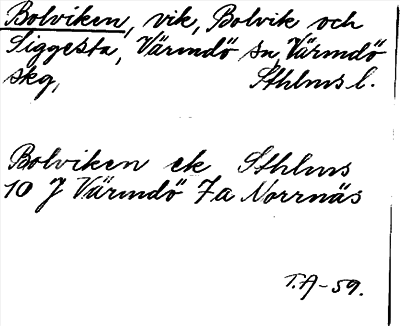 Bolviken, vik, Bolvik och
Siggesta, Värmdö sn, Värmdö
skg, Sthlms l.
Bolviken ek Sthlms
10 J Värmdö 7a Norrnäs
T.A-59.